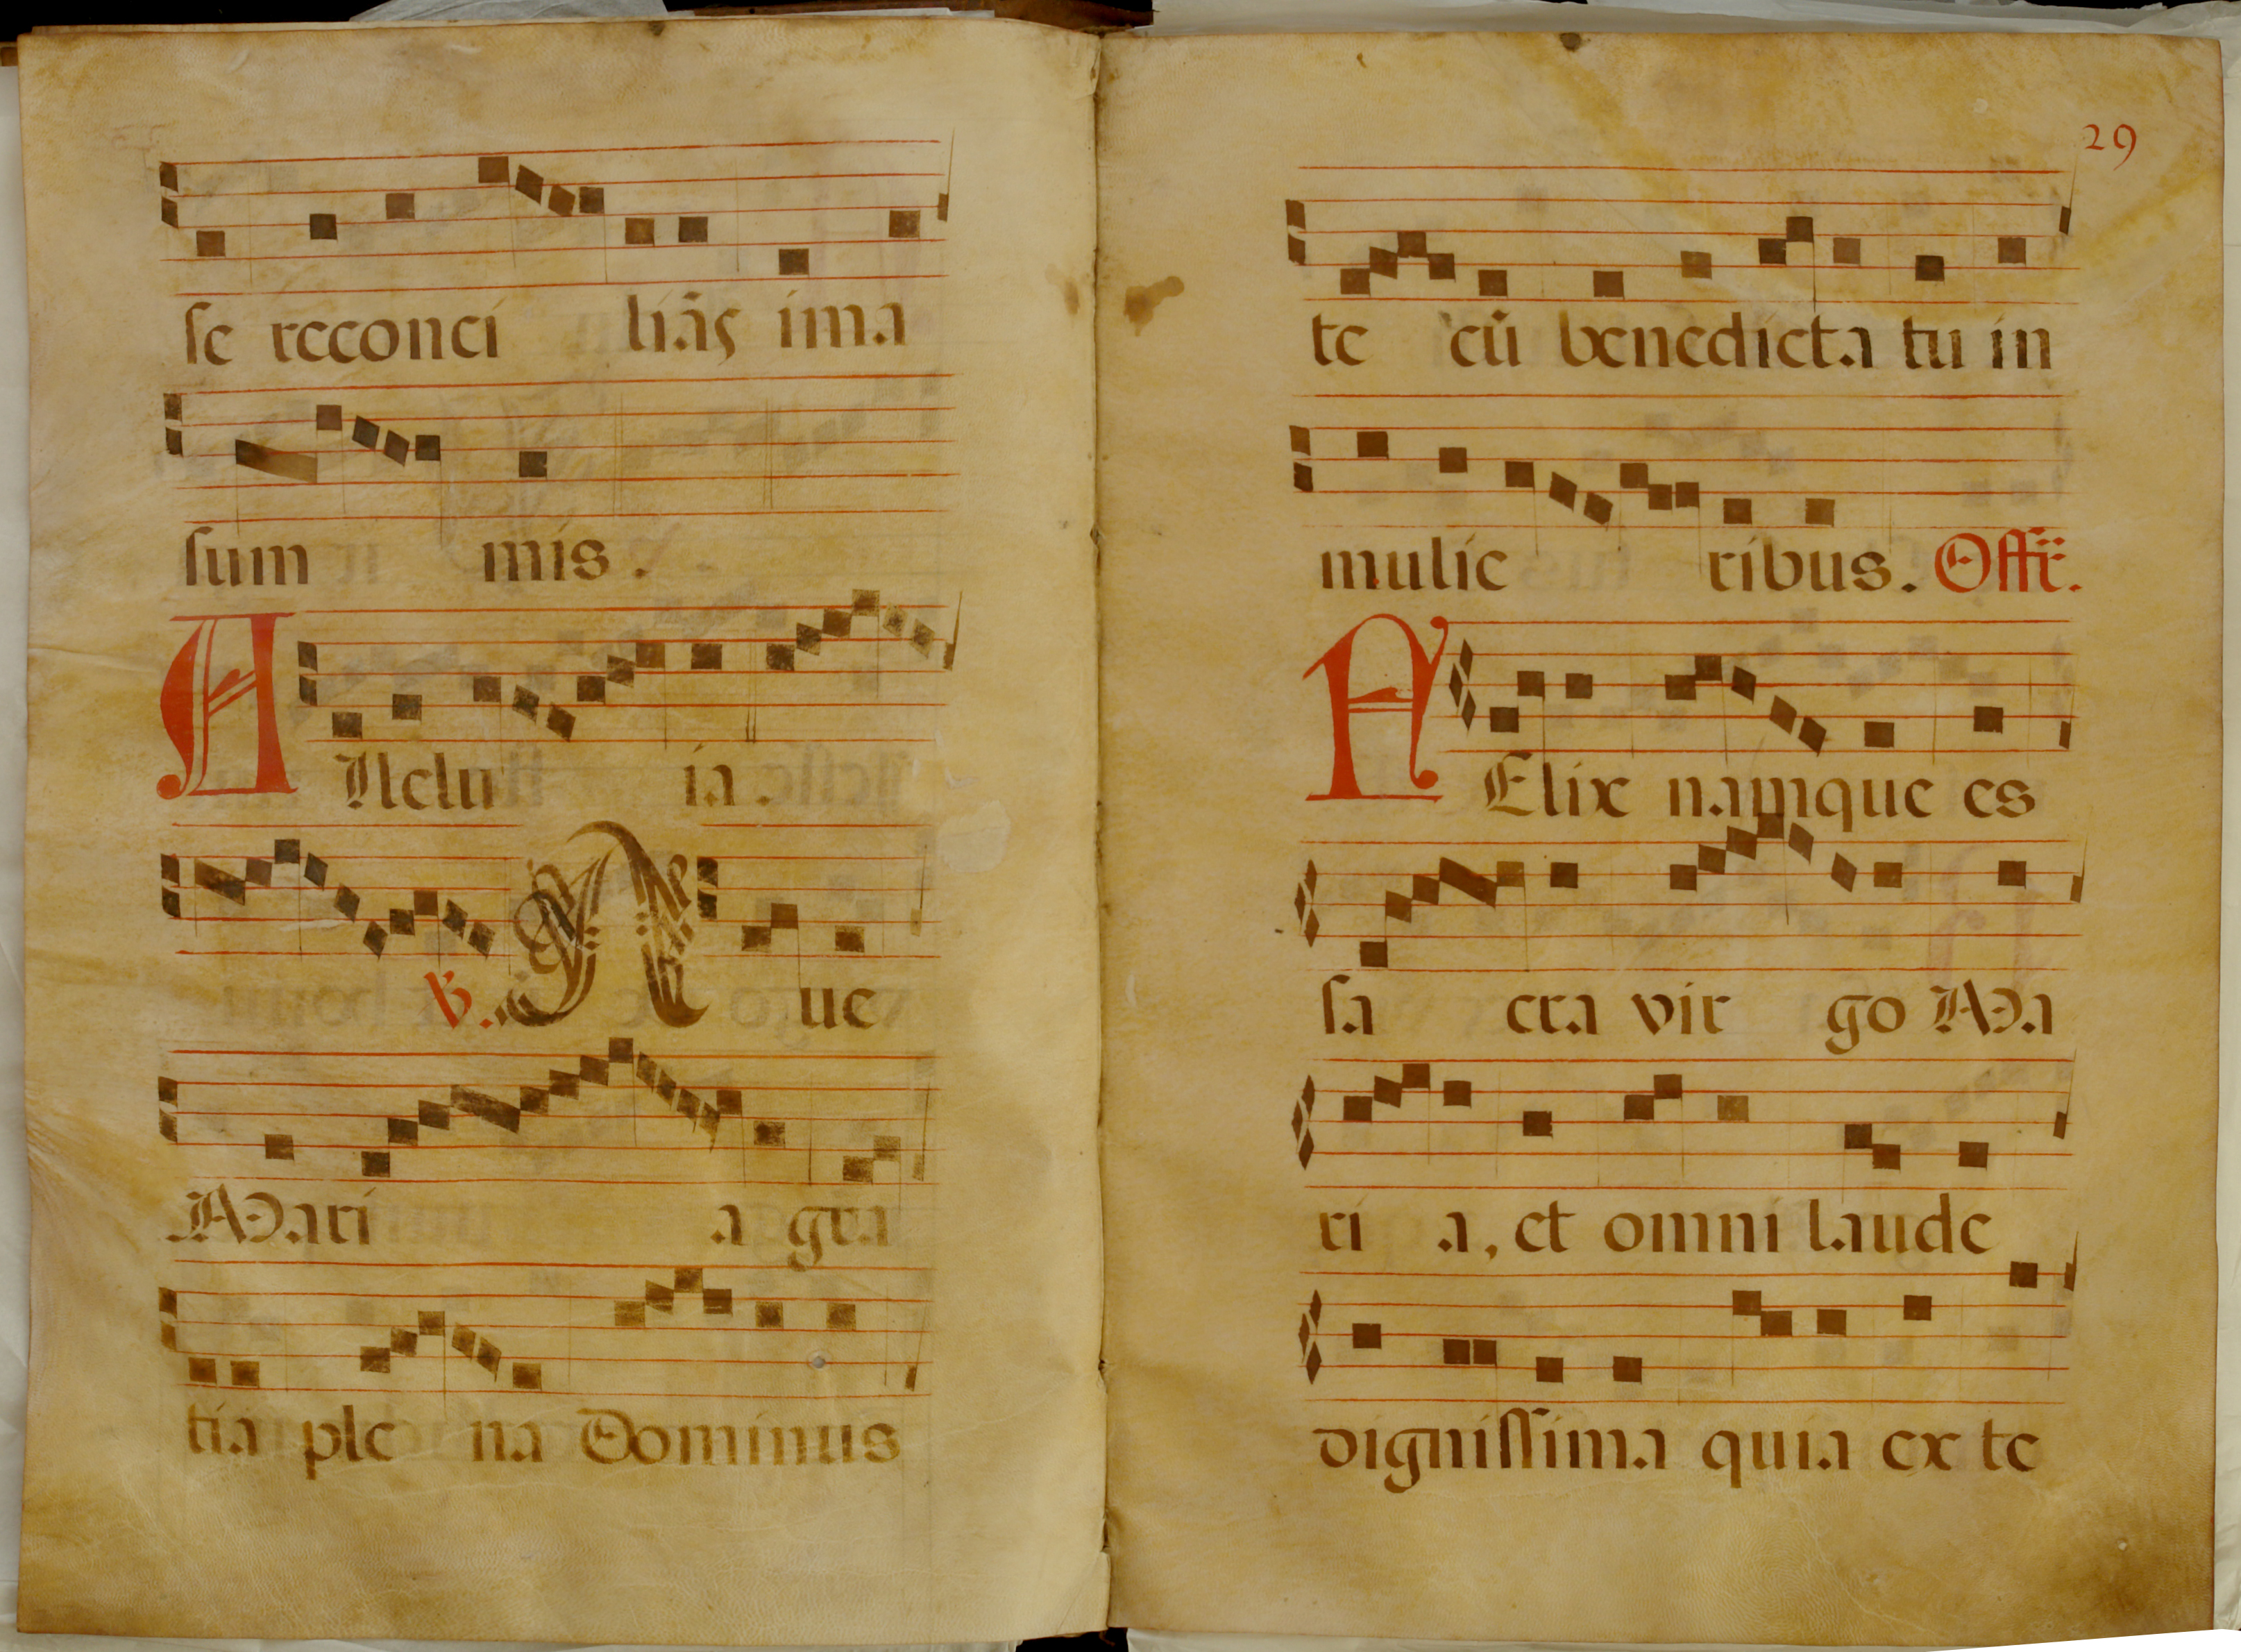 se reconci liãs ima
sum mis.
Allelu ia.
℣. Aue
Mari a gra
tia ple na Dominus
29
te cũ benedicta tu in
mulie ribus. Offr̃.
FElix namque es
sa cra vir go Ma
ri a, et omni laude
dignissima quia ex te